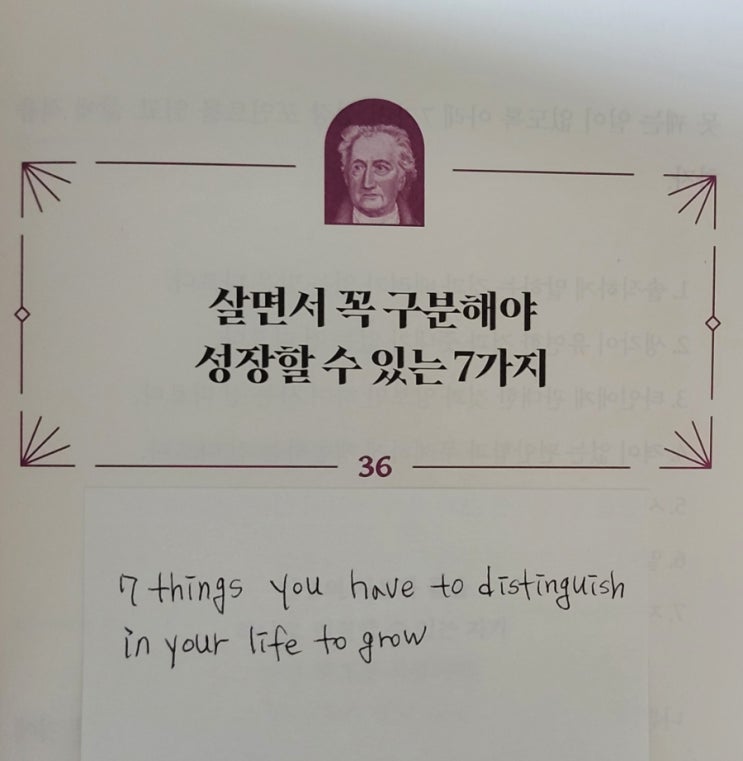 살면서 꼭 구분해야
성장할 수 있는 7가지
36
7 things you have to distinguish
in your life to grow